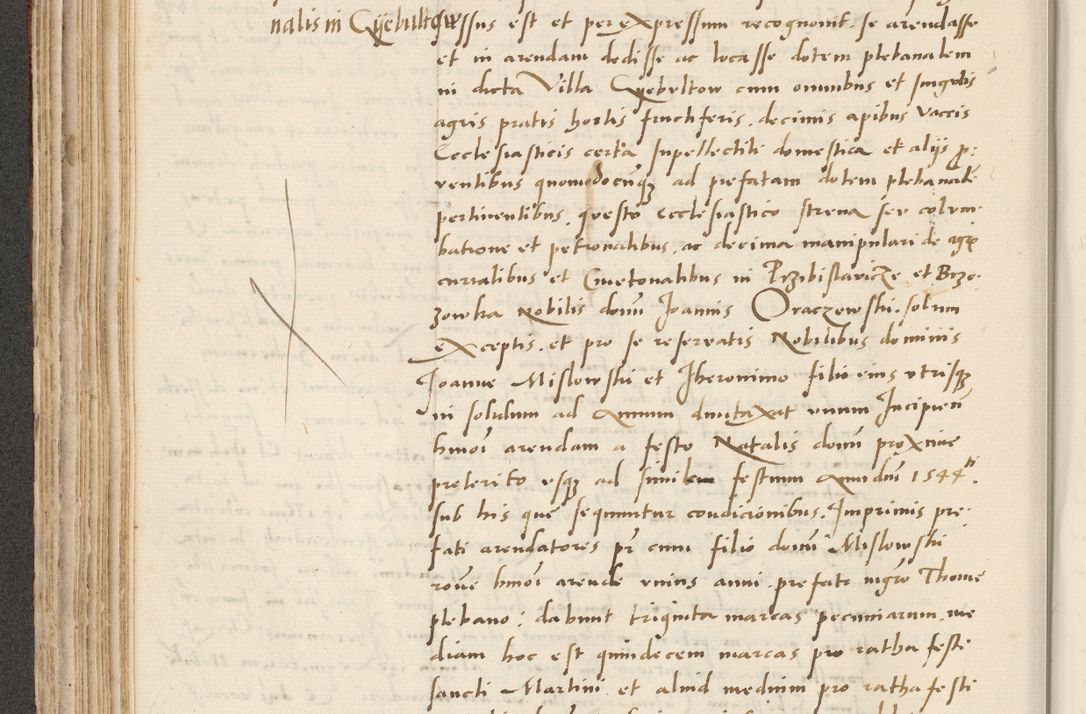 nalis in Gyebultow
fessus est et per expressum recognovit se arendasse
et in arendam dedisse ac locasse dotem plebanalem
in dicta Villa Gyebultow cum omnibus et singulis
agris pratis hortis fructiferis decimis apibus Vaccis
Ecclesiasticis certa supellectili domestica et alijs pro:
ventibus quomodocunque ad prefatam dotem plebanale
pertinentibus, questo ecclesiastico strena seu colum-
batione et petronalibus, ac decima manipulari de agris
curialibus et Cmetonalibus in Przibislavicze et Brzo-
zowka Nobilis domini Joannis Oraczewski. solum
exceptis, et pro se reservatis Nobilibus dominis
Joanne Mislowski et Jheronimo filio eius utrisque
in solidum ad Annum duntaxat unum Incipien
hmoi arendam a festo Natalis domini proxime
preterito usque ad similem festum Anni domini 1544ti.
sub his que sequuntur condicionibus, Imprimis pre-
fati arendatores pr cum filio domini Mislowski
rone hmoi arende unius anni prefato mgro Thome
plebano: dabunt triginta marcas pecuniarum, me
diam hoc est quindecem marcas pro ratha festi
sancti Martini et aliud medium pro ratha festi